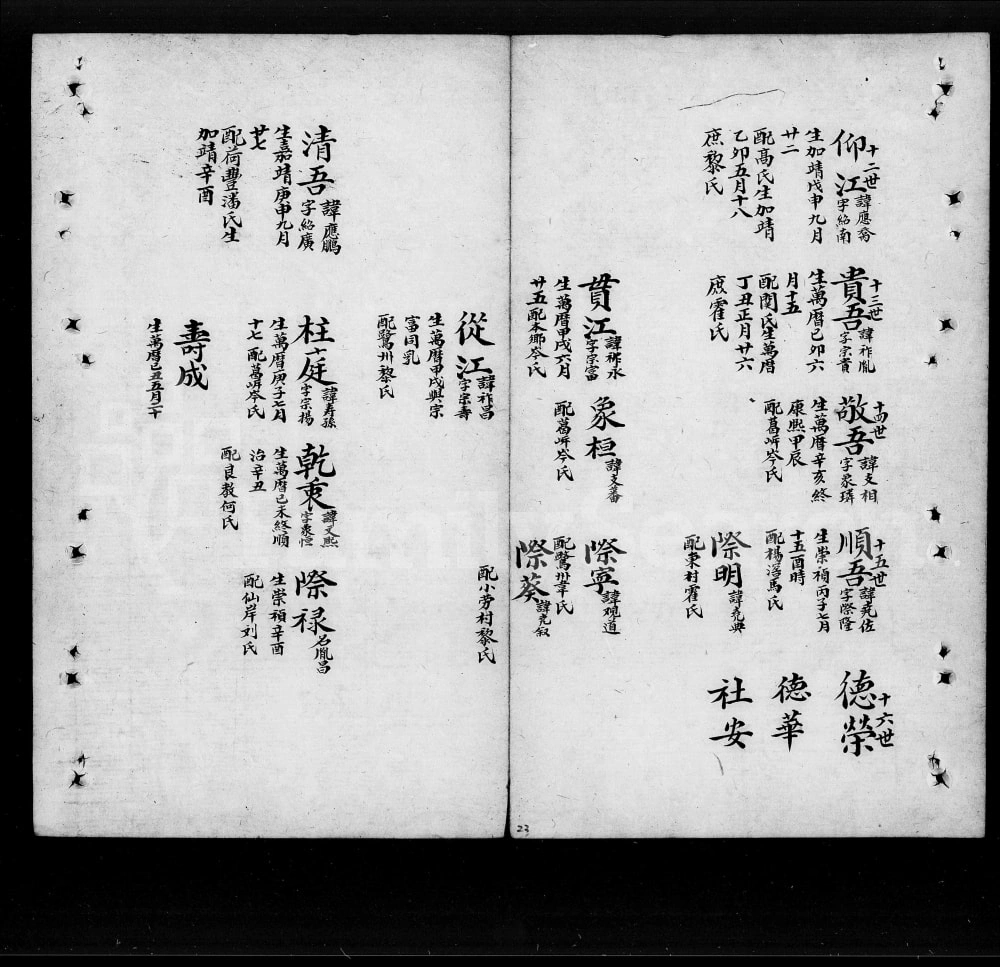 十二世
仰江
諱應裔
字紹南
生加靖戊申九月
廿二
配高氏生加靖
乙卯五月十八
庶黎氏
十三世
貴吾
諱祚胤
字宗貴
生萬曆己卯六
月十五
配関氏生萬曆
丁丑正月廿六
庶霍氏
十四世
敬吾
諱支相
字象璘
生萬曆辛亥終
康熙甲辰
配葛岸岑氏
十五世
順吾
諱堯佐
字際隆
生崇禎丙子七月
十五酉時
配楊滘馬氏
十六世
德榮
德華
社安
際明
諱堯典
配東村霍氏
貫江
諱祚永
字宗富
生萬曆甲戌六月
廿五配本鄉岑氏
象桓
諱支蕃
配葛岸岑氏
際寧
諱觀道
配鷺州韋氏
際葵
諱堯叙
配小劳村黎氏
從江
諱祚昌
字宗壽
生萬曆甲戌與宗
富同乳
配鷺州黎氏
清吾
諱應鵬
字紹廣
生嘉靖庚申九月
廿七
配荷豐潘氏生
加靖辛酉
柱庭
諱寿孫
字宗揚
生萬曆庚子七月
十七 配葛岸岑氏
乾秉
諱文熙
字象恒
生萬曆己未終順
治辛丑
配良教何氏
際禄
名胤昌
生崇禎辛酉
配仙岸刘氏
壽成
生萬曆己丑五月二十
23